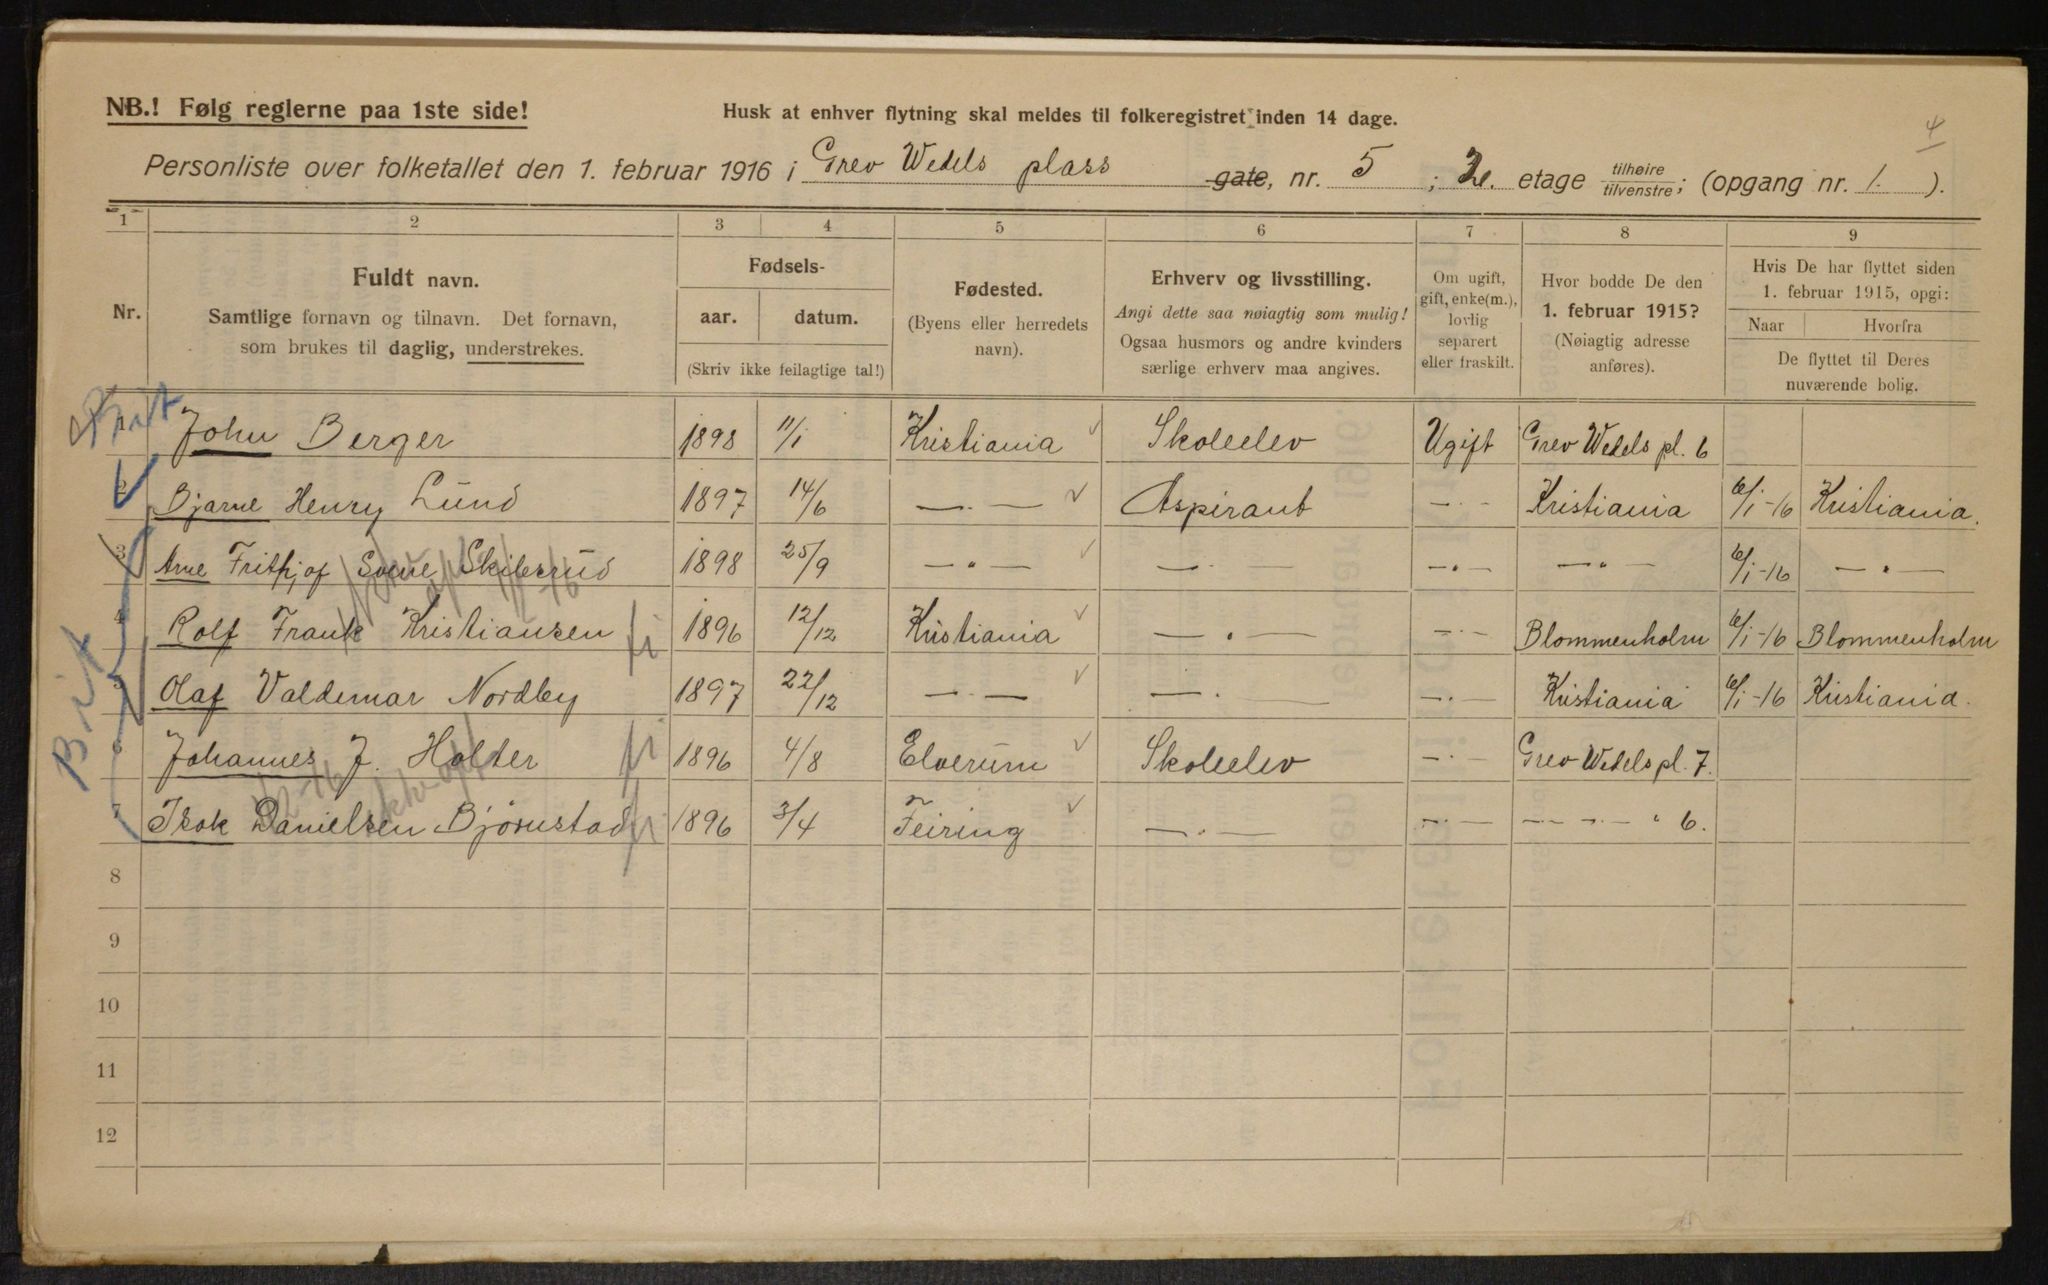 NB.! Følg reglerne paa 1ste side!
Husk at enhver flytning skal meldes til folkeregistret inden 14 dage.
4
Personliste over folketallet den 1. februar 1916 i Grev Wedels plass gate, nr. 5 ; 2. etage tilhøire tilvenstre; (opgang nr. 1. ).
1 2 3 4 5 6 7 8 9
Nr.
Fuldt navn.
Samtlige fornavn og tilnavn. Det fornavn,
som brukes til daglig, understrekes.
Fødsels-
aar. datum.
(Skriv ikke feilagtige tal!)
Fødested.
(Byens eller herredets
navn).
Erhverv og livsstilling.
Angi dette saa nøiagtig som mulig!
Ogsaa husmors og andre kvinders
særlige erhverv maa angives.
Om ugift,
gift, enke(m.),
lovlig
separert
eller fraskilt.
Hvor bodde De den
1. februar 1915?
(Nøiagtig adresse
anføres).
Hvis De har flyttet siden
1. februar 1915, opgi:
Naar Hvorfra
De flyttet til Deres
nuværende bolig.
1 John Berger 1898 11/1 Kristiania Skoleelev Ugift Grev Wedels pl. 6
2 Bjarne Henry Lund 1897 14/6 — . — Aspirant — . — Kristiania 6/1 -16 Kristiania.
3 Arne Frithjof Skibsrud 1898 25/9 — " — — . — — " — — " — 6/1 -16 — " —
4 Rolf Frank Kristiansen 1896 12/12 Kristiania — " — — . — Blommenholm 6/1 -16 Blommenholm
5 Olaf Valdemar Nordby 1897 22/12 — . — — . — — . — Kristiania 6/1 -16 Kristiania.
6 Johannes J. Holter 1896 4/8 Elverum Skoleelev — . — Grev Wedels pl. 7.
7 Isak Danielsen Bjørnstad 1896 3/4 Feiring — . — — . — — . — — . — " 6.
8
9
10
11
12